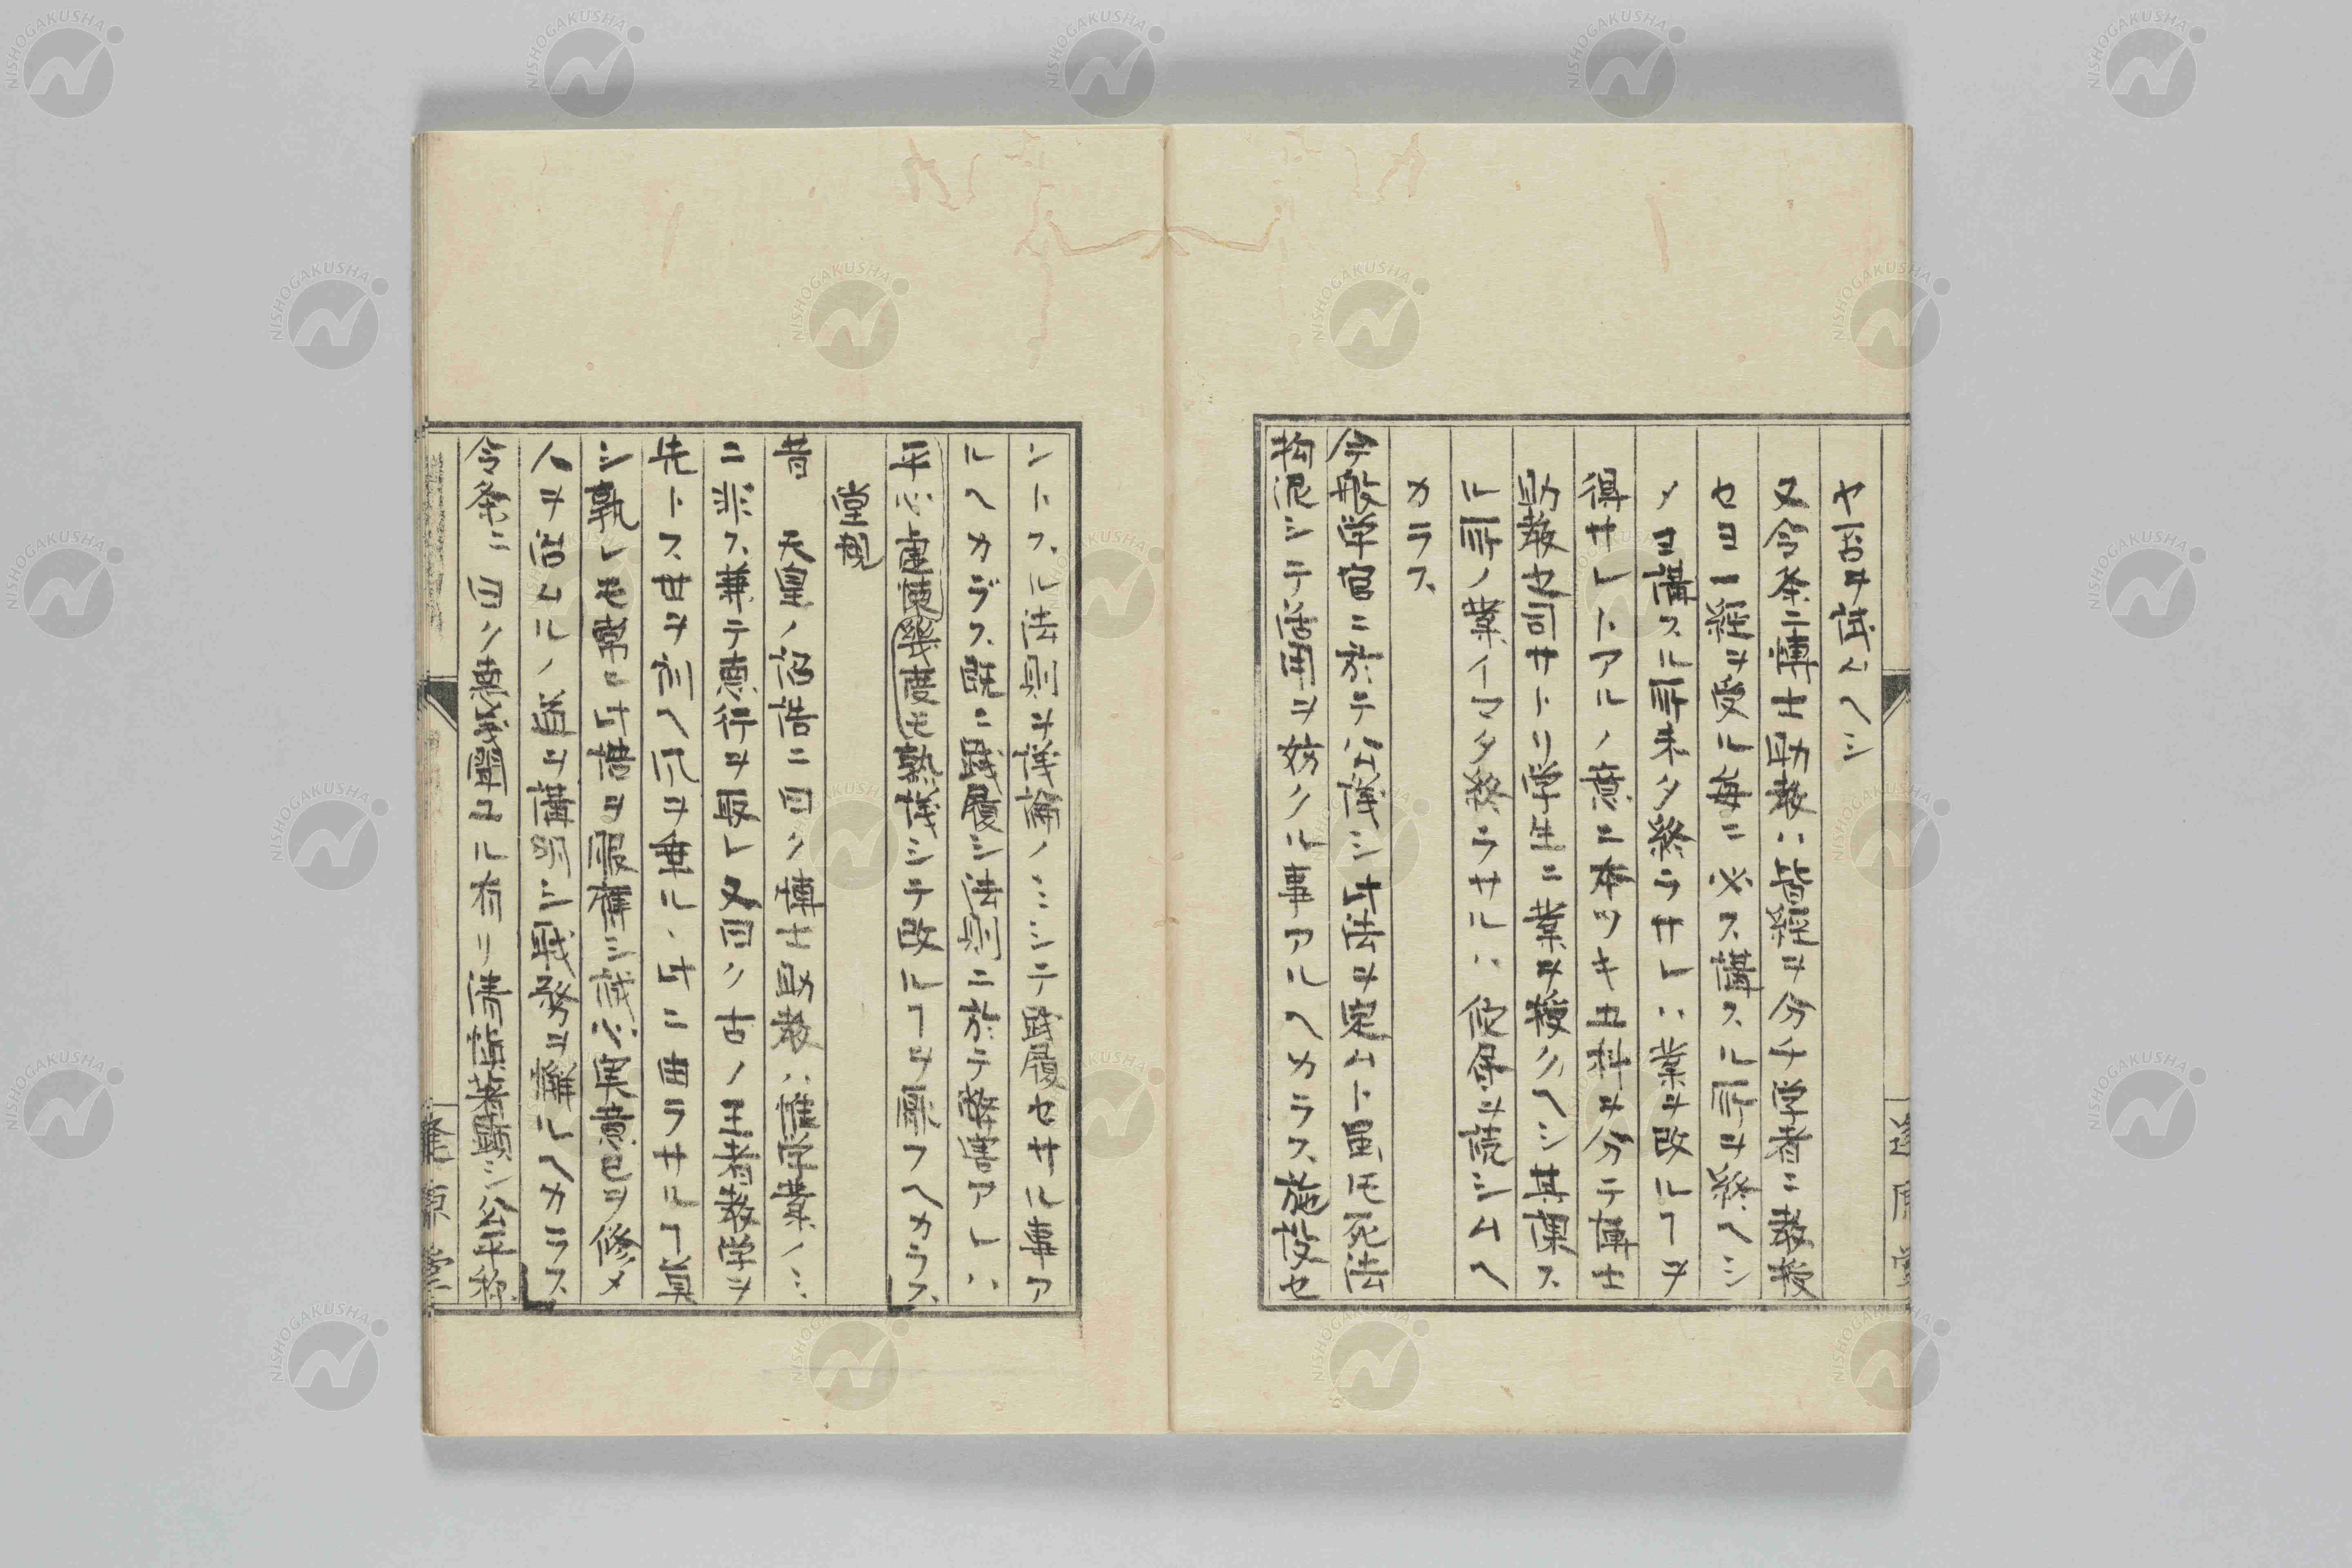 ヤ否ヲ試ムヘシ
又令条ニ博士助教ハ皆経ヲ分チ学者ニ教授
セヨ一経ヲ受ル毎ニ必ス講スル所ヲ終ヘシ
メヨ講スル所未タ終ラサレハ業ヲ改ルヿヲ
得サレトアルノ意ニ本ツキ五科ヲ分テ博士
助教ヲ司サトリ学生ニ業ヲ授クヘシ其課ス
ル所ノ業イマタ終ラサルハ他学ヲ読シムヘ
カラス
今般学官ニ於テ公議シ此法ヲ定ムト雖モ死法
拘泥シテ活用ヲ妨クル事アルヘカラス施設セ
ントスル法則ヲ議論ノミニシテ践履セサル事ア
ルヘカラス既ニ践履シ法則ニ於テ弊害アレハ
平心虚懐幾度モ熟議シテ改ルヿヲ厭フヘカラス
堂規
昔 天皇ノ詔誥ニ曰ク博士助教ハ惟学業ノミ
ニ非ス兼テ徳行ヲ取レ又曰ク古ノ王者教学ヲ
先トス世ヲ利ヘ風ヲ垂ルヽ此ニ由ラサルヿ莫
シ孰レモ常ニ此措ヲ服膺シ誠心実意己ヲ修メ
人ヲ治ムルノ道ヲ講明シ職務ヲ懈ルヘカラス
令条ニ曰ク徳義聞ユル有リ清慎著顕シ公平称